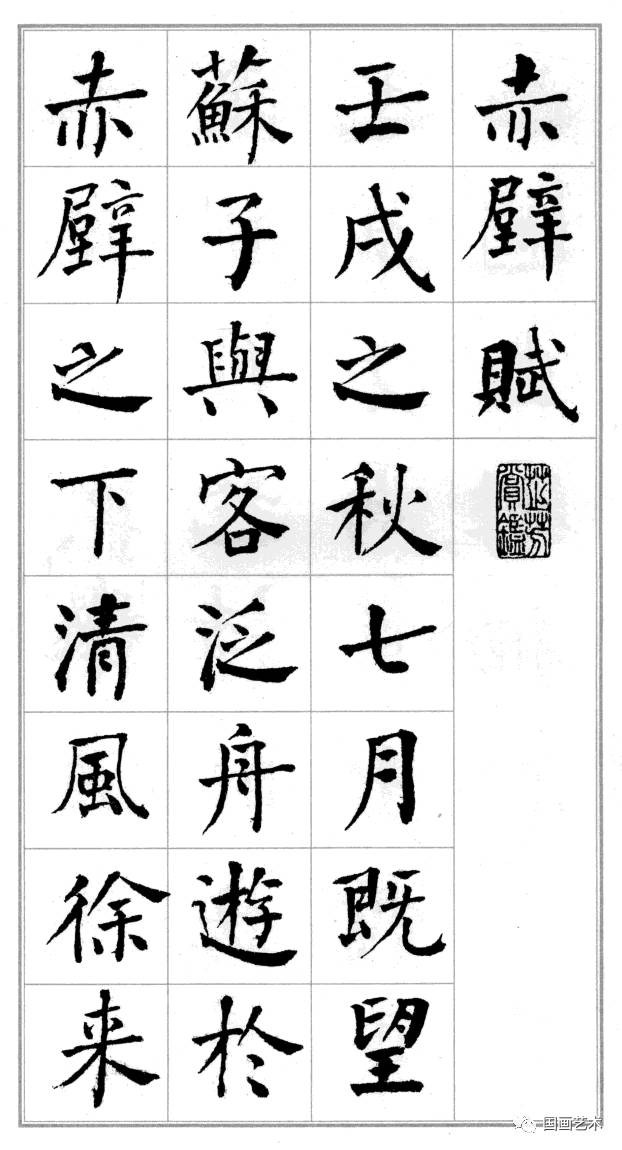 赤壁賦
壬戌之秋七月既望
蘇子與客泛舟遊於
赤壁之下清風徐来
国画艺术